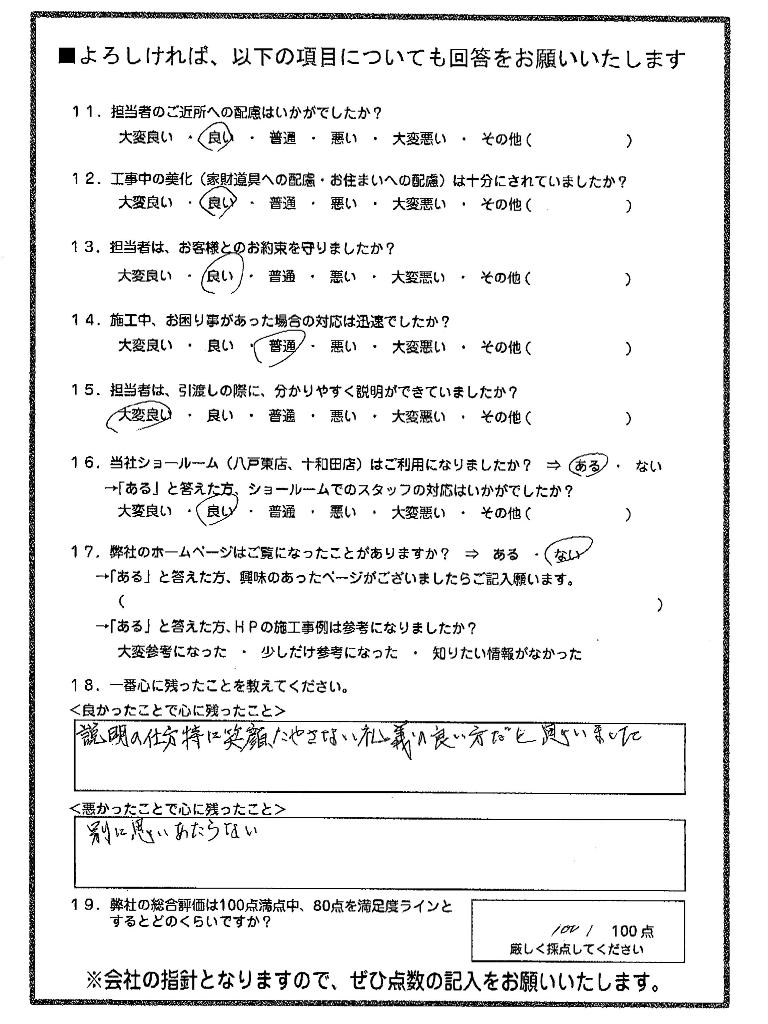 ■よろしければ、以下の項目についても回答をお願いいたします
11．担当者のご近所への配慮はいかがでしたか？
大変良い ・ 良い ・ 普通 ・ 悪い ・ 大変悪い ・ その他（ ）
12．工事中の美化（家財道具への配慮・お住まいへの配慮）は十分にされていましたか？
大変良い ・ 良い ・ 普通 ・ 悪い ・ 大変悪い ・ その他（ ）
13．担当者は、お客様とのお約束を守りましたか？
大変良い ・ 良い ・ 普通 ・ 悪い ・ 大変悪い ・ その他（ ）
14．施工中、お困り事があった場合の対応は迅速でしたか？
大変良い ・ 良い ・ 普通 ・ 悪い ・ 大変悪い ・ その他（ ）
15．担当者は、引渡しの際に、分かりやすく説明ができていましたか？
大変良い ・ 良い ・ 普通 ・ 悪い ・ 大変悪い ・ その他（ ）
16．当社ショールーム（八戸東店、十和田店）はご利用になりましたか？ ⇒ ある ・ ない
→「ある」と答えた方、ショールームでのスタッフの対応はいかがでしたか？
大変良い ・ 良い ・ 普通 ・ 悪い ・ 大変悪い ・ その他（ ）
17．弊社のホームページはご覧になったことがありますか？ ⇒ ある ・ ない
→「ある」と答えた方、興味のあったページがございましたらご記入願います。
（ ）
→「ある」と答えた方、HPの施工事例は参考になりましたか？
大変参考になった ・ 少しだけ参考になった ・ 知りたい情報がなかった
18．一番心に残ったことを教えてください。
<良かったことで心に残ったこと>
説明の仕方特に笑顔たやさない礼義の良い方だと思いました
<悪かったことで心に残ったこと>
別に思いあたらない
19．弊社の総合評価は100点満点中、80点を満足度ラインと
するとどのくらいですか？
100 / 100点
厳しく採点してください
※会社の指針となりますので、ぜひ点数の記入をお願いいたします。